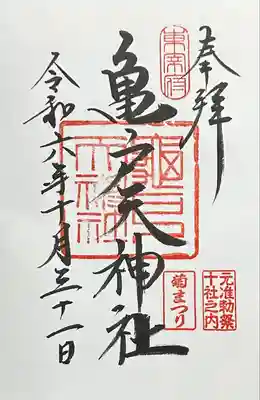 奉拝
東宰府
亀戸天神社
亀戸天神社
元准勅祭
十社之内
菊まつり
令和六年十月三十一日